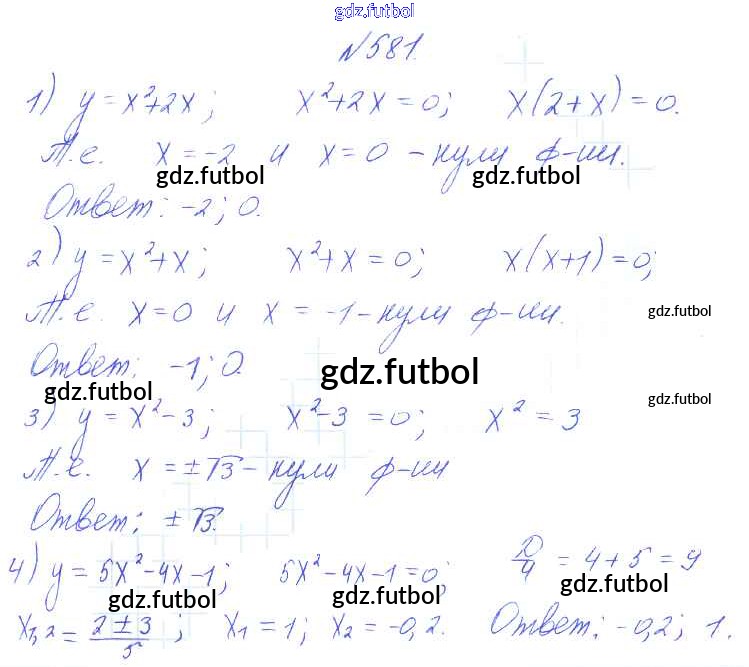 gdz.futbol
№581.
1) y = x²+2x; x²+2x = 0; x(2+x) = 0.
Т.е. x = -2 и x = 0 - нули ф-ии.
gdz.futbol gdz.futbol
Ответ: -2; 0.
2) y = x²+x; x²+x = 0; x(x+1) = 0;
Т.е. x = 0 и x = -1 - нули ф-ии. gdz.futbol
Ответ: -1; 0.
gdz.futbol gdz.futbol gdz.futbol
3) y = x²-3; x²-3 = 0; x² = 3
Т.е. x = ±√3 - нули ф-ии
Ответ: ±√3.
4) y = 5x²-4x-1; 5x²-4x-1 = 0; D/4 = 4+5 = 9
gdz.futbol gdz.futbol gdz.futbol
x₁,₂ = (2±3)/5; x₁ = 1; x₂ = -0,2. Ответ: -0,2; 1.